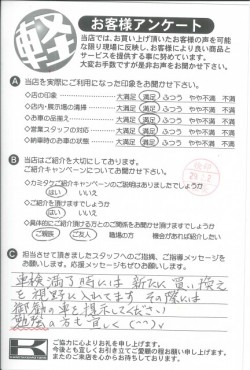 軽
お客様アンケート
当店では、お買い上げ頂いたお客様の声を可能
な限り現場に反映し、お客様により良い商品と
サービスを提供する事に努めています。
大変お手数ですが是非お声をお聞かせ下さい。
A 当店を実際にご利用になった印象をお聞かせ下さい。
◇店の印象 大満足 満足 ふつう やや不満 不満
◇店内・展示場の清掃 大満足 満足 ふつう やや不満 不満
◇お車の品揃え 大満足 満足 ふつう やや不満 不満
◇営業スタッフの対応 大満足 満足 ふつう やや不満 不満
◇納車時のお車の状態 大満足 満足 ふつう やや不満 不満
B 当店はご紹介を大切にしております。
ご紹介キャンペーンについてお聞かせ下さい。
◇カミタケご紹介キャンペーンのご説明はありましたでしょうか
はい いいえ
◇ご紹介を頂けますでしょうか
はい いいえ
◇具体的にご紹介頂ける方とのご関係をお聞かせ頂けますでしょうか
ご親族 ご友人 職場の方 機会があれば紹介したい
C 担当させて頂きましたスタッフへのご指摘、ご指導メッセージを
お願いします。応援メッセージもぜひお願いします。
車検満了時には 新たに買い換え
を視野に入れてます その際には
の車を提示してください
勉強の方も宜しく
ご協力に心よりお礼を申し上げます。
今後とも宜しくお引き立てご愛顧の程お願い申し上げます。
またのご来店を心からお待ちしております。